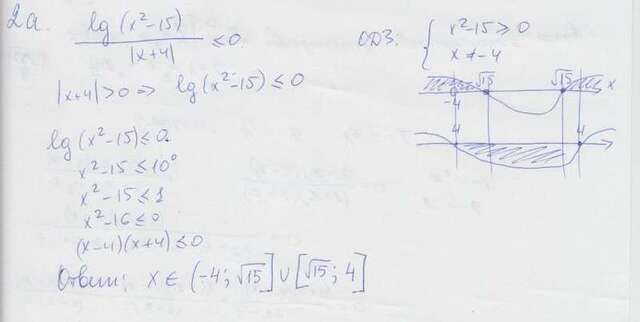 2a. lg(x²-15) / |x+4| ≤ 0
ОДЗ: { x²-15 > 0
x ≠ -4
|x+4| > 0 ⇒ lg(x²-15) ≤ 0
√15 √15 x
-4
4 4
lg(x²-15) ≤ 0
x²-15 ≤ 10⁰
x²-15 ≤ 1
x²-16 ≤ 0
(x-4)(x+4) ≤ 0
Ответ: x ∈ (-4; √15] ∪ [√15; 4]